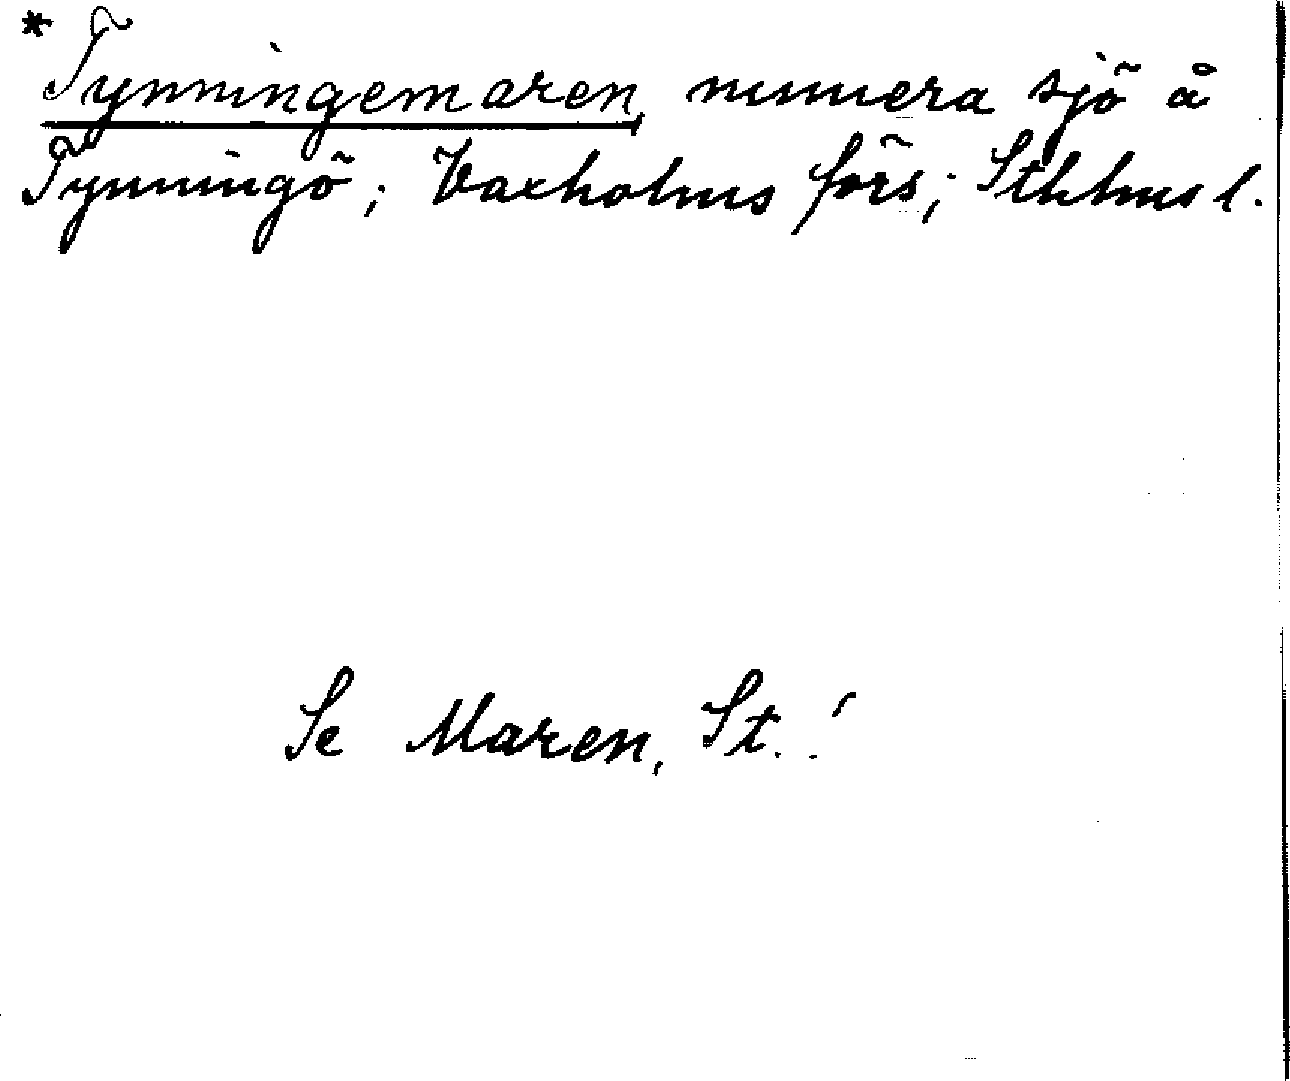 *Tynningemaren, numera sjö å
Tynningö; Vaxholms förs; Sthlms l.
Se Maren, St.!